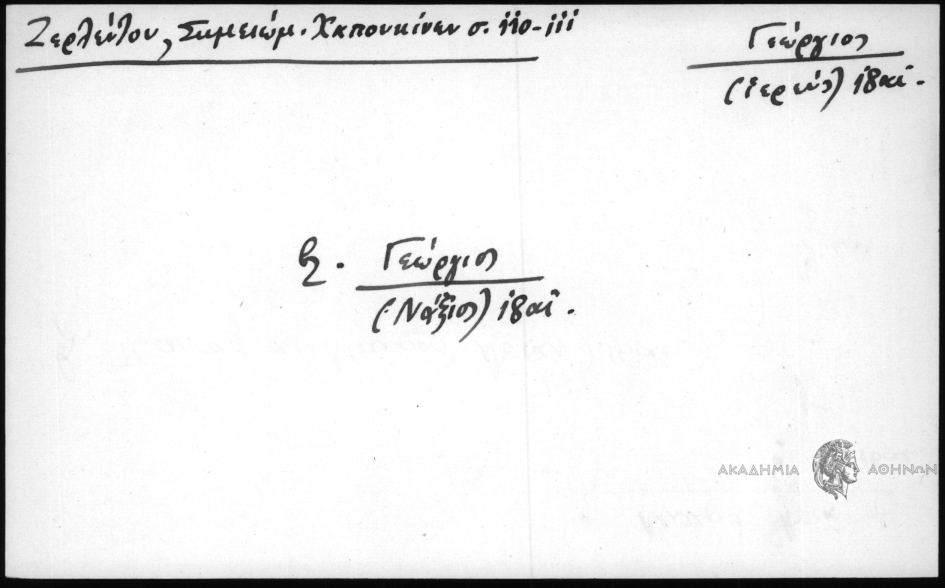 Ζερλέντου, Σημειώμ. Χαπουκίνων σ. 110-111
Γεώργιος
(ἱερεύς) 18αί.
β. Γεώργιος
(Νάξιος) 18αί.
ΑΚΑΔΗΜΙΑ ΑΘΗΝΩΝ